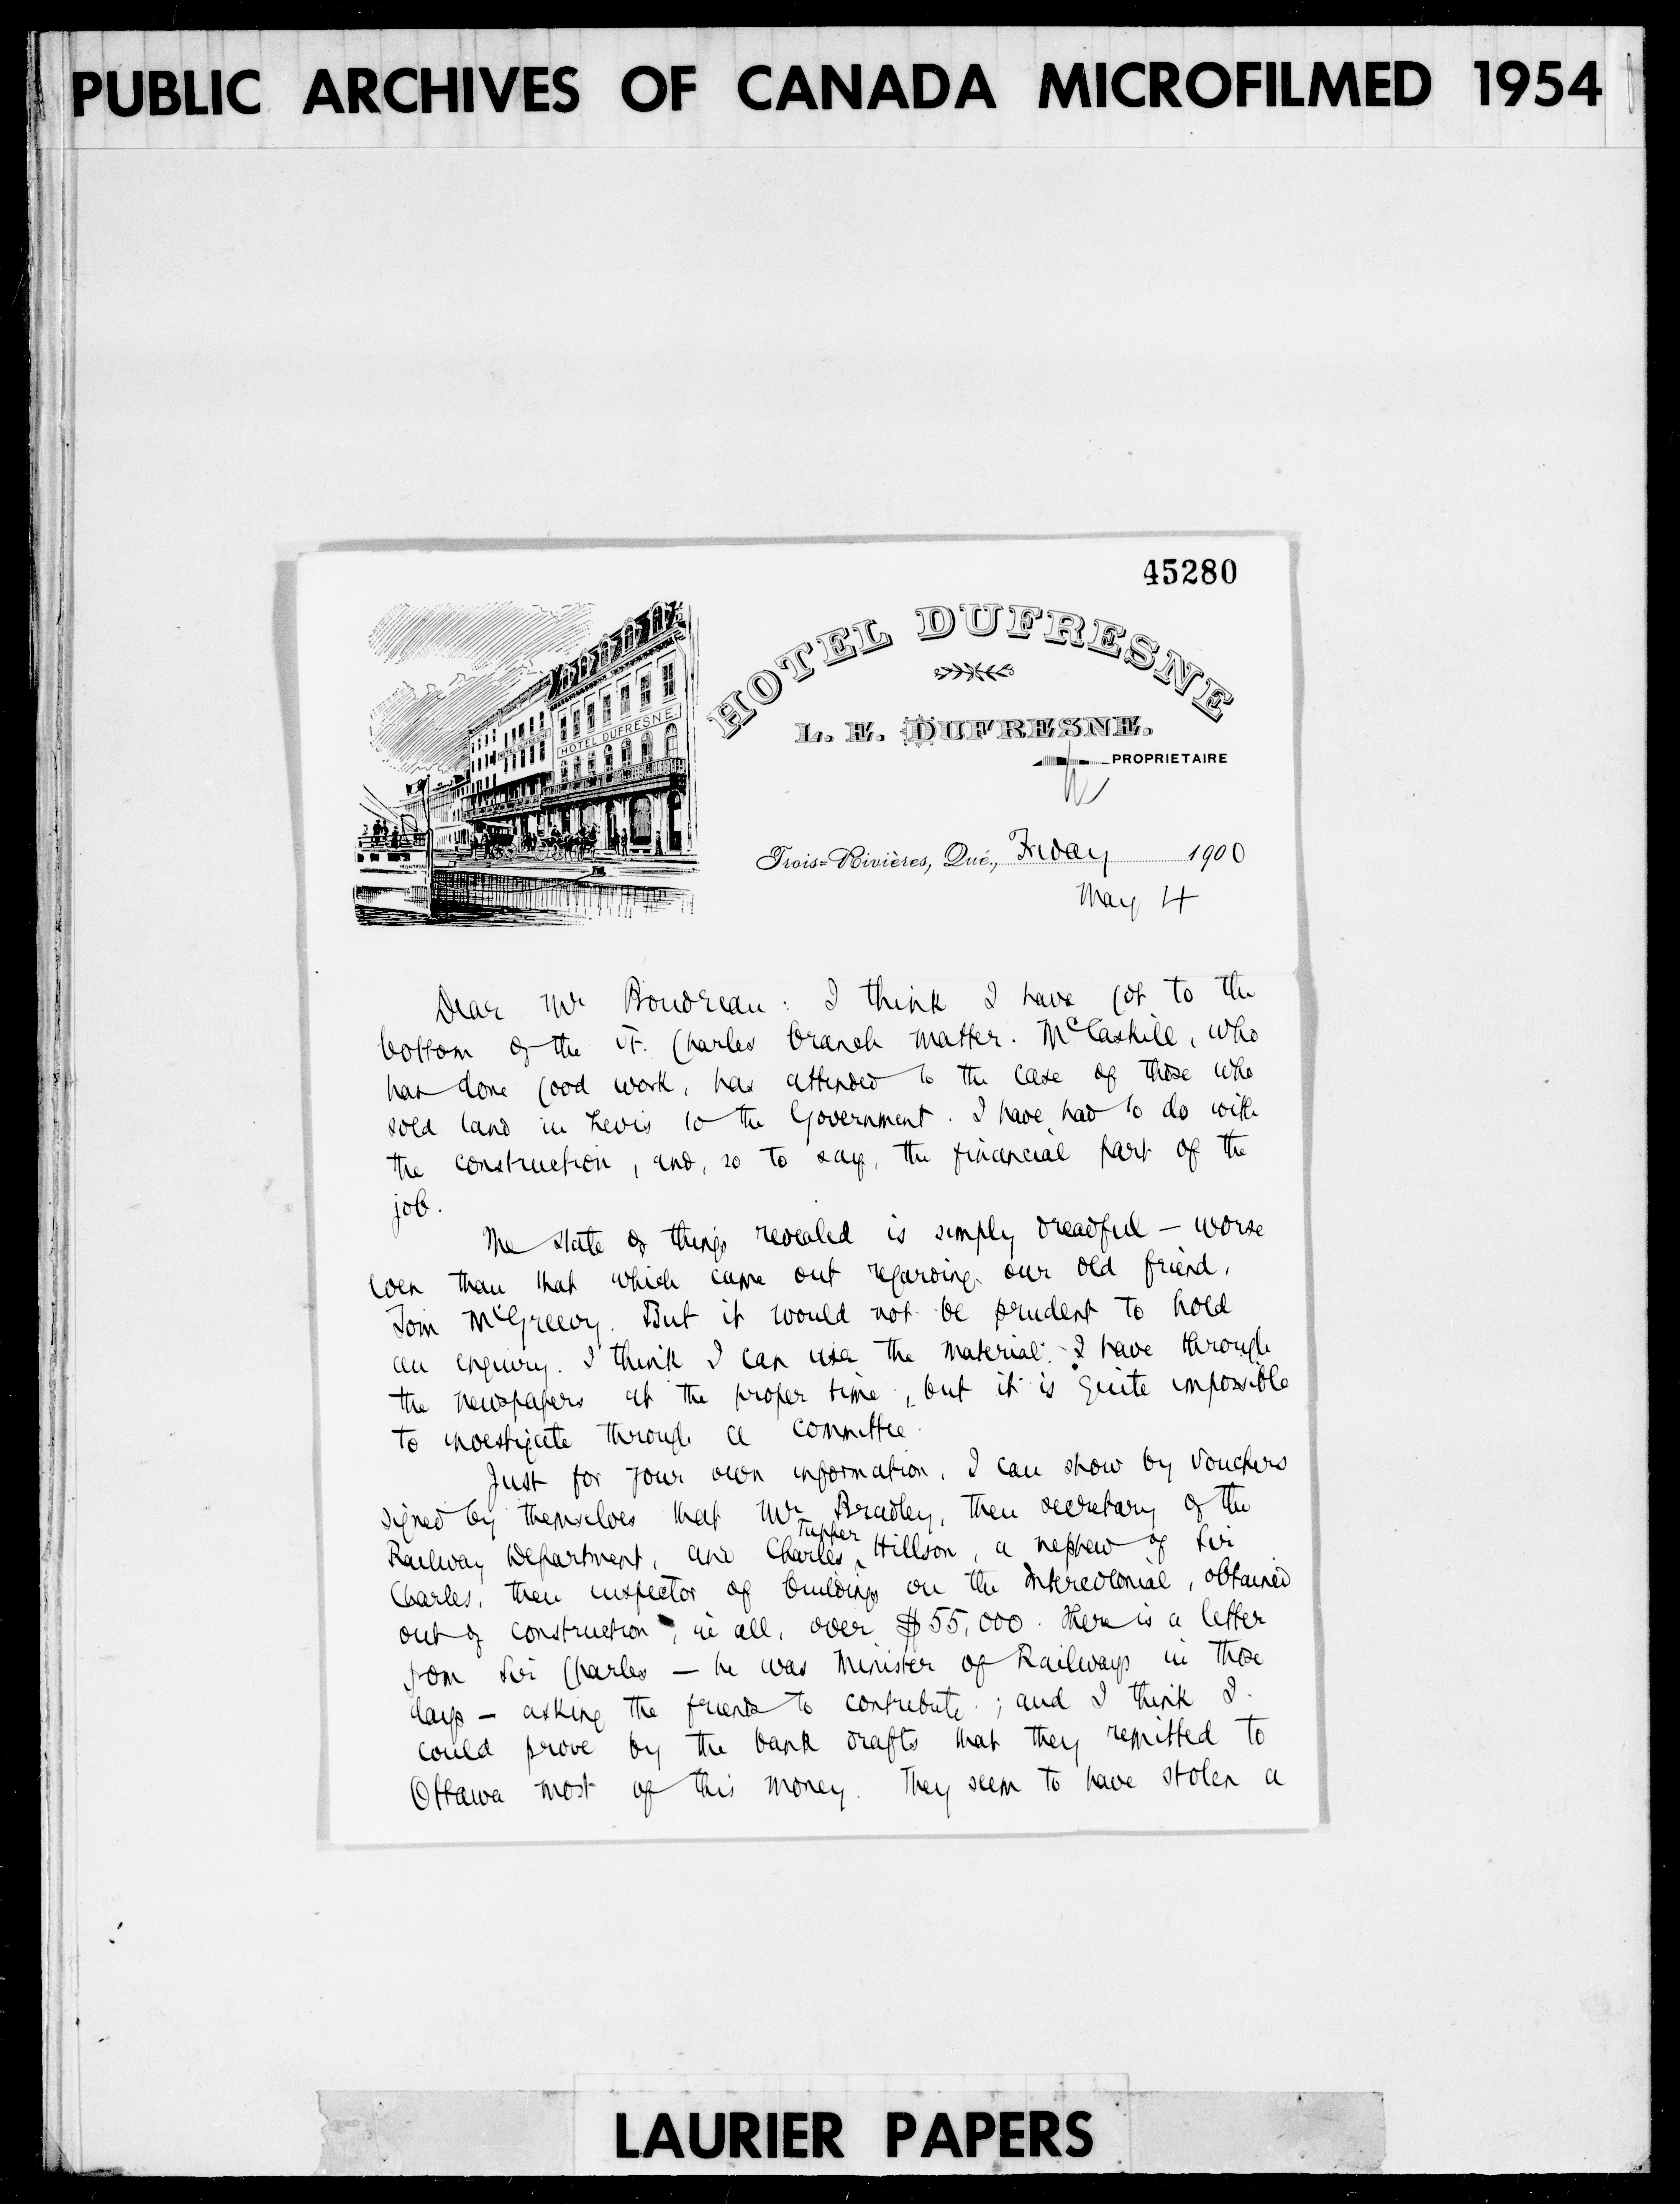 PUBLIC ARCHIVES OF CANADA MICROFILMED 1954
45280
HOTEL DUFRESNE
L. E. DUFRESNE.
PROPRIETAIRE
HOTEL DUFRESNE.
Trois-Rivières, Qué., Friday 1900
May 4
Dear Mr Boudreau: I think I have got to the
bottom of the St. Charles branch matter. McCaskill, who
has done good work, has attended to the case of those who
sold land in Levis to the Government. I have had to do with
the construction, and, so to say, the financial part of the
job.
The state of things revealed is simply dreadful – worse
even than that which came out regarding our old friend,
Tom McGreevy. But it would not be prudent to hold
an enquiry. I think I can use the material I have through
the newspapers at the proper time, but it is quite impossible
to investigate through a committee.
Just for your own information, I can show by vouchers
signed by themselves that Mr Bradley, then secretary of the
Railway Department, and Charles Tupper Hillson, a nephew of Sir
Charles, then inspector of buildings on the Intercolonial, obtained
out of construction, in all, over $55,000. There is a letter
from Sir Charles – he was Minister of Railways in those
days – asking the friends to contribute; and I think I
could prove by the bank drafts that they remitted to
Ottawa most of this money. They seem to have stolen a
LAURIER PAPERS